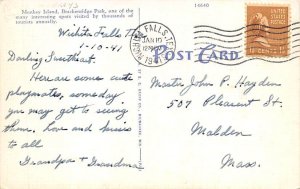 Monkey Island, Brackenridge Park, one of the
many interesting spots visited by thousands of
tourists annually.
14640
Wichita Falls
1-10-41
Darling Sweetheart.
Here are some cute
playmates, someday
you may get to seeing
them. Love and kisses
to all
Grandpa + Grandma
WICHITA FALLS, TEXAS
JAN 10
1941
POST CARD
Master John P. Hayden
507 Pleasant St.
Malden
Mass.